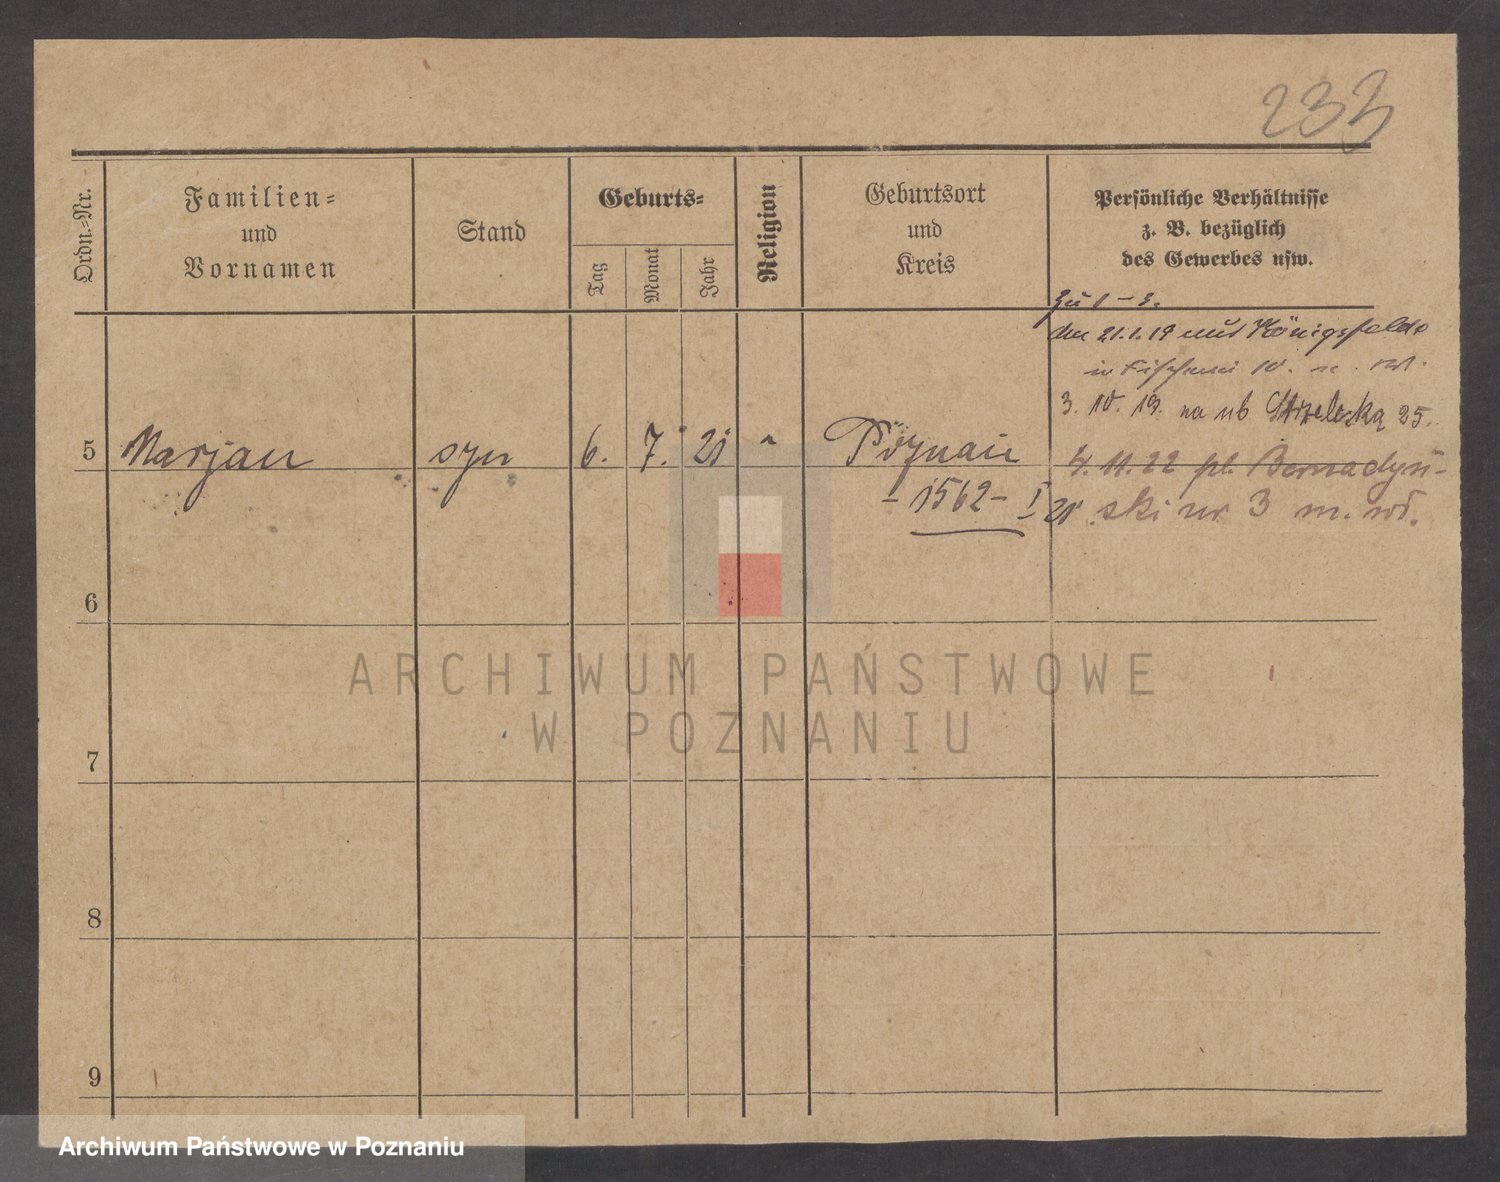 233
Ordn.-Nr.
Familien-
und
Vornamen
Stand
Geburts-
Tag
Monat
Jahr
Religion
Geburtsort
und
Kreis
Persönliche Verhältnisse
z. B. bezüglich
des Gewerbes usw.
zu 1-3.
den 21.1.19 Königsfelde
in
3. 10. 19. na ub Strzelecka 25.
5 Marjan syn 6. 7. 21 " Poznań
4. 11. 22 pl. Bernadyń-
ski nr 3 m. wł.
- 1562 - I 21
6
ARCHIWUM PAŃSTWOWE
W POZNANIU
7
8
9
Archiwum Państwowe w Poznaniu